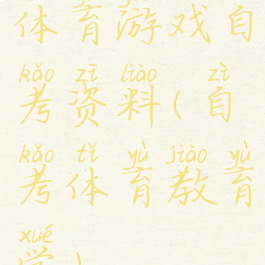 体育游戏自
kǎo zī liào zì
考资料(自
kǎo tǐ yù jiào yù
考体育教育
xué
学)